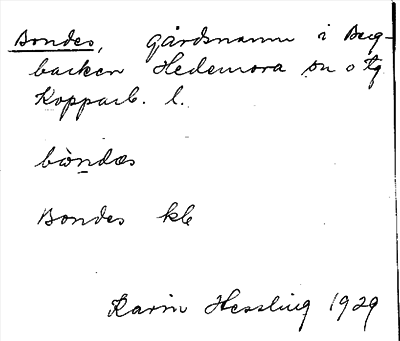 Bondes, gårdsnamn i Berg-
backen Hedemora sn o tg
Kopparb. l.
bòndæs
Bondes kb
Karin Hessling 1929